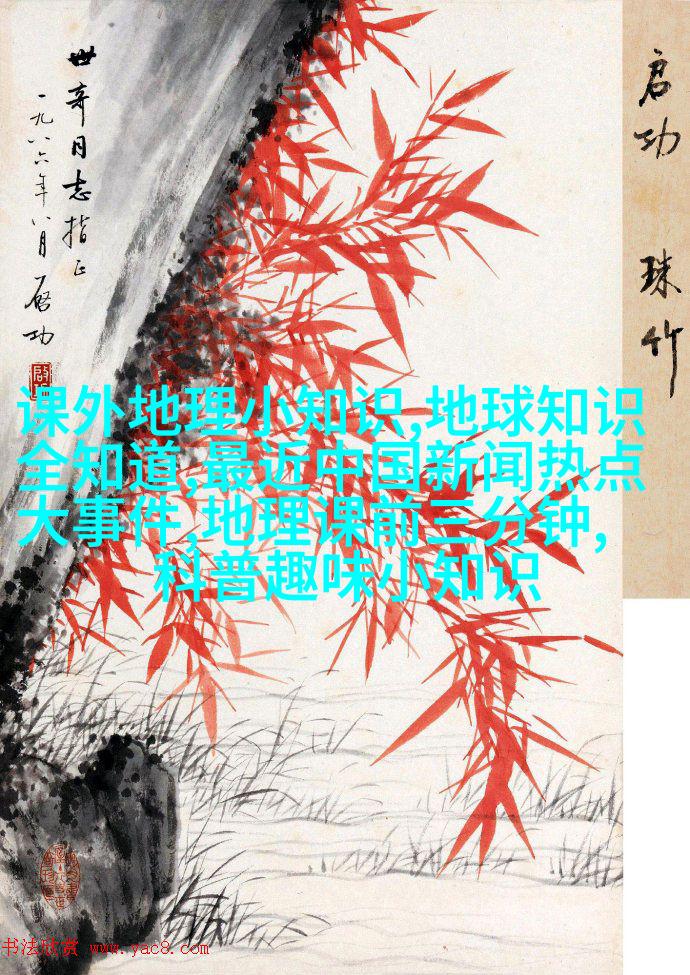 世奇同志指正
一九八六年八月启功
启功
珠竹
课外地理小知识,地球知识
全知道,最近中国新闻热点
大事件,地理课前三分钟,
科普趣味小知识
书法欣赏 www.yac8.com